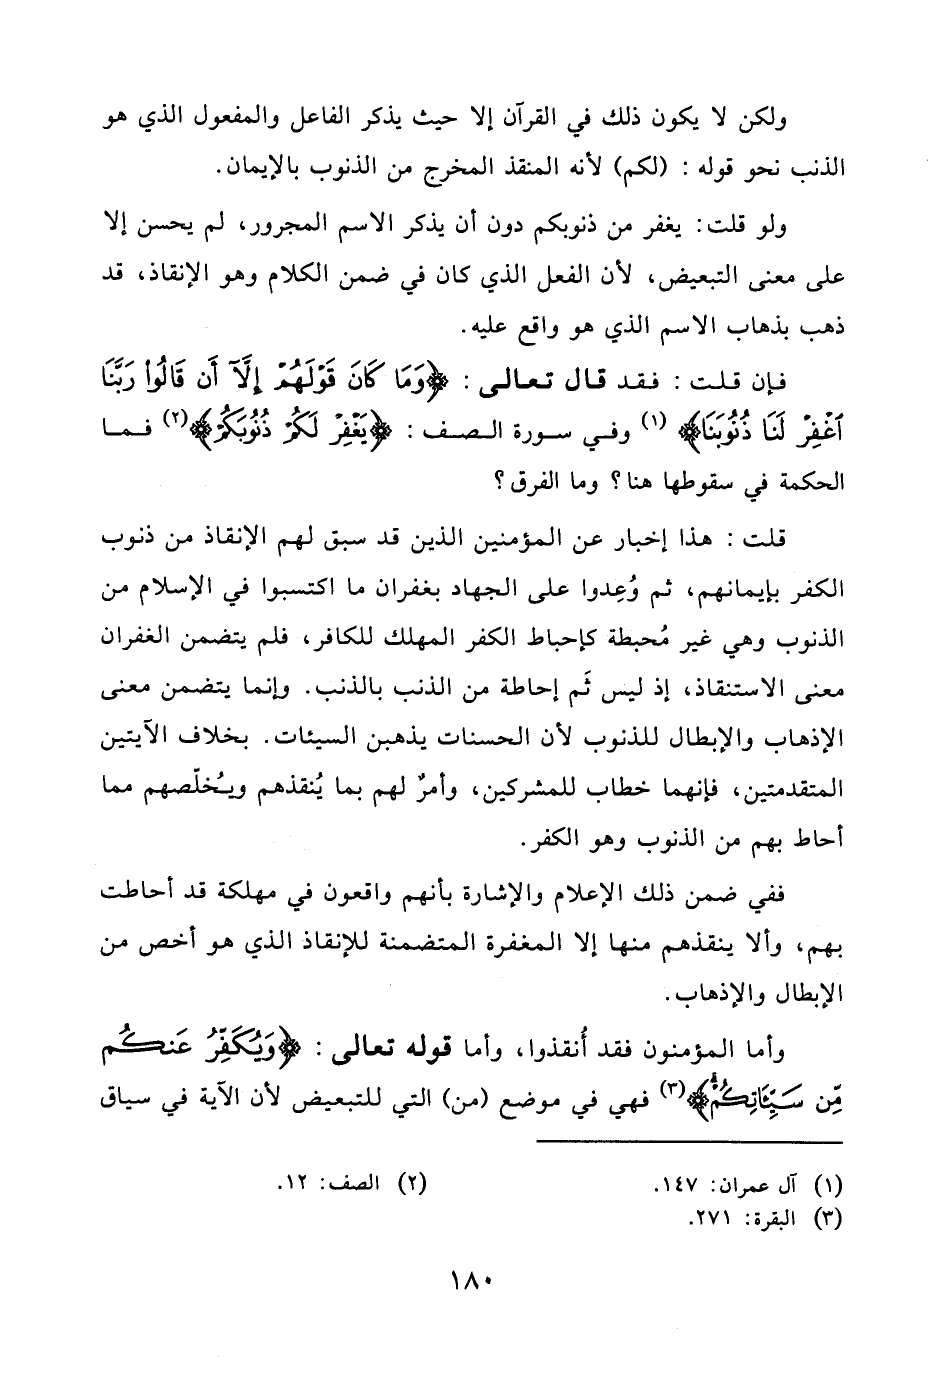 ولكن لا يكون ذلك في القرآن إلا حيث يذكر الفاعل والمفعول الذي هو
الذنب نحو قوله : (لكم) لأنه المنقذ المخرج من الذنوب بالإيمان.
ولو قلت: يغفر من ذنوبكم دون أن يذكر الاسم المجرور، لم يحسن إلا
على معنى التبعيض، لأن الفعل الذي كان في ضمن الكلام وهو الإنقاذ، قد
ذهب بذهاب الاسم الذي هو واقع عليه.
فإن قلت : فقد قال تعالى : ﴿وَمَا كَانَ قَوْلَهُمْ إِلَّآ أَن قَالُوا۟ رَبَّنَا
ٱغْفِرْ لَنَا ذُنُوبَنَا﴾ (١) وفي سورة الصف : ﴿يَغْفِرْ لَكُمْ ذُنُوبَكُمْ﴾(٢) فما
الحكمة في سقوطها هنا؟ وما الفرق؟
قلت : هذا إخبار عن المؤمنين الذين قد سبق لهم الإنقاذ من ذنوب
الكفر بإيمانهم، ثم وُعِدوا على الجهاد بغفران ما اكتسبوا في الإسلام من
الذنوب وهي غير مُحبطة كإحباط الكفر المهلك للكافر، فلم يتضمن الغفران
معنى الاستنقاذ، إذ ليس ثَم إحاطة من الذنب بالذنب. وإنما يتضمن معنى
الإذهاب والإبطال للذنوب لأن الحسنات يذهبن السيئات. بخلاف الآيتين
المتقدمتين، فإنهما خطاب للمشركين، وأمرٌ لهم بما يُنقذهم ويُخلّصهم مما
أحاط بهم من الذنوب وهو الكفر.
ففي ضمن ذلك الإعلام والإشارة بأنهم واقعون في مهلكة قد أحاطت
بهم، وألا ينقذهم منها إلا المغفرة المتضمنة للإنقاذ الذي هو أخص من
الإبطال والإذهاب.
وأما المؤمنون فقد أُنقذوا، وأما قوله تعالى : ﴿وَيُكَفِّرُ عَنكُم
مِّن سَيِّـَٔاتِكُمْ﴾(٣) فهي في موضع (من) التي للتبعيض لأن الآية في سياق
(١) آل عمران: ١٤٧. (٢) الصف: ١٢.
(٣) البقرة: ٢٧١.
١٨٠